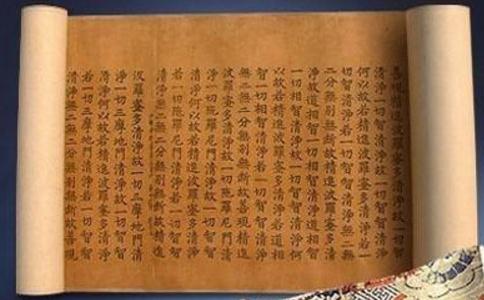 善現精進波羅蜜多清淨故一切智
清淨一切智清淨故一切智智清淨
何以故若精進波羅蜜多清淨若一
切智清淨若一切智智清淨無二無
二分無別無斷故精進波羅蜜多清
淨故道相智一切相智清淨道相智
一切相智清淨故一切智智清淨何
以故若精進波羅蜜多清淨若道相
智一切相智清淨若一切智智清淨
無二無二分無別無斷故善現精進
波羅蜜多清淨故一切陀羅尼門清
淨一切陀羅尼門清淨故一切智智
清淨何以故若精進波羅蜜多清淨
若一切陀羅尼門清淨若一切智智
清淨無二無二分無別無斷故精進
波羅蜜多清淨故一切三摩地門清
淨一切三摩地門清淨故一切智智
清淨何以故若精進波羅蜜多清淨
若一切三摩地門清淨若一切智智
清淨無二無二分無別無斷故善現